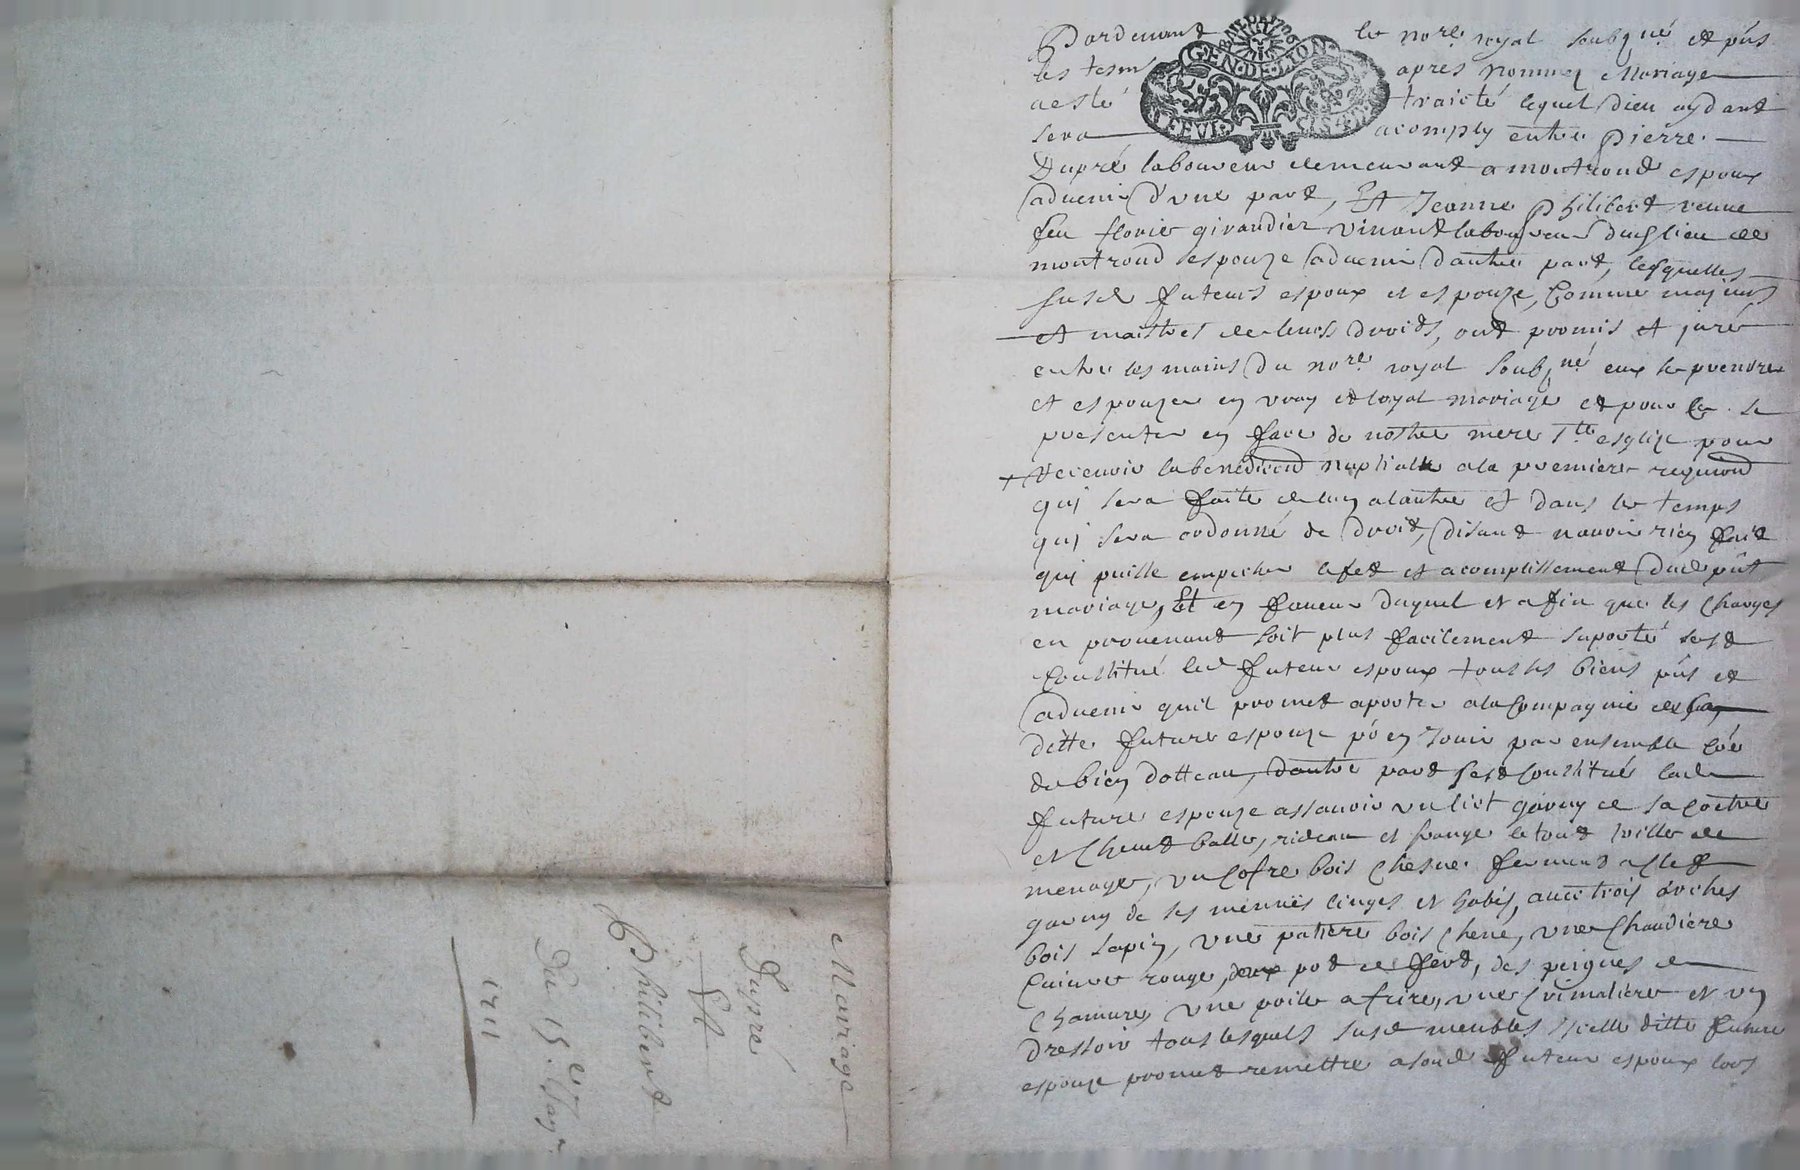 Pardevant le no.re royal soubz.né et p̂ns
les tesm apres nommez Mariage
a esté traicté lequel Dieu aydant
sera acomply entre Pierre
Dupré laboureur demeurant a montrond espoux
aduenir d'une part, Et Jeanne Philibert veuve
feu florie girandier vivant laboureur dud lieu de
montrond espouze aduenir dautre part, lesquelles
susd futeurs espoux et espouze, Comme majeurs
et maistres de leurs droits, ont promis et juré
entre les mains du no.re royal soubz.né eux se prendre
et espouzer en vray et loyal mariage et pour ce se
presenter en face de nostre mere s.te esglize pour
recevoir la benediction nuptialle a la premiere requi.on
qui sera faite de lun a lautre et dans le temps
qui sera ordonné de droit, disant navoir rien fait
qui puisse empecher lefet et acomplissement dud p̂nt
mariage, Et en faueur duquel et afin que les charges
en prouenant soit plus facilement suporté sest
Constitué led futeur espoux tous ses biens p̂ns et
aduenir quil promet aporter a la Compagnie de sa
ditte future espouze po en Jouir par ensemble Coe
de bien dotteau, dautre part sest Constitué lad
future espouze assauoir un lict garny de sa Coetre
et Cheuet balle, rideau et frange le tout toille de
menage, un Cofre bois Chesne fermant a Clef
garny de ses menues linges et habis, auec trois arches
bois sapin, une patiere bois chene, une Chaudiere
Cuivre rouge, deux pot de fert, des peignes de
Chamure, une poile a frire, une Crimaliere et un
dressoir tous lesquels susd meubles icelle ditte future
espouze promet remettre a sond futeur espoux lors
GEN·DE·LYON
Mariage
Dupré
Et
Philibert
Du 15.e Jan.r
1711